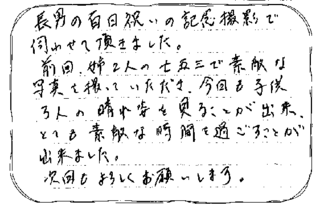 長男の百日祝いの記念撮影で
伺わせて頂きました。
前回、姉2人の七五三で素敵な
写真を撮っていただき、今回も子供
3人の晴れ姿を見ることが出来、
とても素敵な時間を過ごすことが
出来ました。
次回もよろしくお願いします。